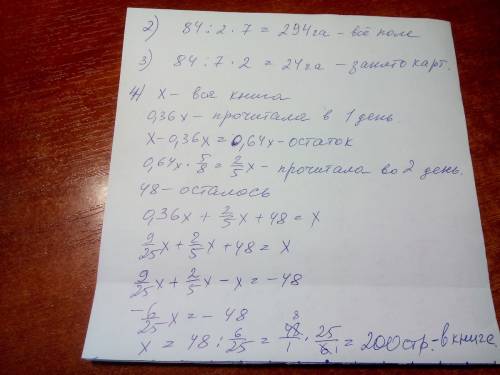 2) 84 : 2 · 7 = 294 га – всё поле
3) 84 : 7 · 2 = 24 га – занято карт.
4) х – вся книга
0,36х – прочитала в 1 день.
х – 0,36х = 0,64х – остаток
0,64х · 5/8 = 2/5х – прочитала во 2 день.
48 – осталось
0,36х + 2/5х + 48 = х
9/25х + 2/5х + 48 = х
9/25х + 2/5х – х = – 48
– 6/25х = – 48
х = 48 : 6/25 = 48 8/1 · 25/6 1 = 200 стр. – в книге